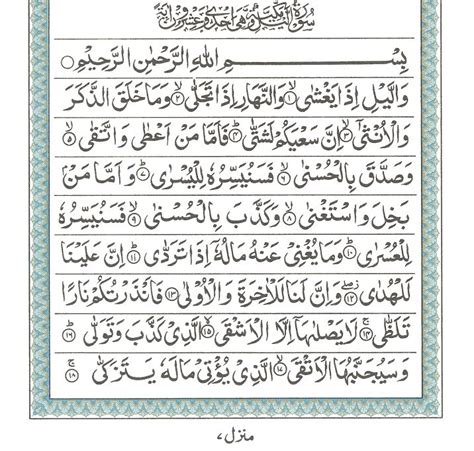 سُوْرَةُ الَّيْلِ مَكِّيَّةٌ وَّهِيَ اِحْدٰى وَعِشْرُوْنَ اٰيَةً
بِسْمِ اللهِ الرَّحْمٰنِ الرَّحِيْمِ ○
وَالَّيْلِ اِذَا يَغْشٰى ۙ۱ وَالنَّهَارِ اِذَا تَجَلّٰى ۙ۲ وَمَا خَلَقَ الذَّكَرَ
وَالْاُنْثٰٓى ۙ۳ اِنَّ سَعْيَكُمْ لَشَتّٰى ؕ۴ فَاَمَّا مَنْ اَعْطٰى وَاتَّقٰى ۙ۵
وَصَدَّقَ بِالْحُسْنٰى ۙ۶ فَسَنُيَسِّرُهٗ لِلْيُسْرٰى ؕ۷ وَاَمَّا مَنْۢ
بَخِلَ وَاسْتَغْنٰى ۙ۸ وَكَذَّبَ بِالْحُسْنٰى ۙ۹ فَسَنُيَسِّرُهٗ
لِلْعُسْرٰى ؕ۱۰ وَمَا يُغْنِيْ عَنْهُ مَالُهٗٓ اِذَا تَرَدّٰى ؕ۱۱ اِنَّ عَلَيْنَا
لَلْهُدٰى ۖ۱۲ وَاِنَّ لَنَا لَلْاٰخِرَةَ وَالْاُوْلٰى ۱۳ فَاَنْذَرْتُكُمْ نَارًا
تَلَظّٰى ۚ۱۴ لَا يَصْلٰىهَآ اِلَّا الْاَشْقَى ۙ۱۵ الَّذِيْ كَذَّبَ وَتَوَلّٰى ؕ۱۶
وَسَيُجَنَّبُهَا الْاَتْقَى ۙ۱۷ الَّذِيْ يُؤْتِيْ مَالَهٗ يَتَزَكّٰى ۚ۱۸
منزل ۷